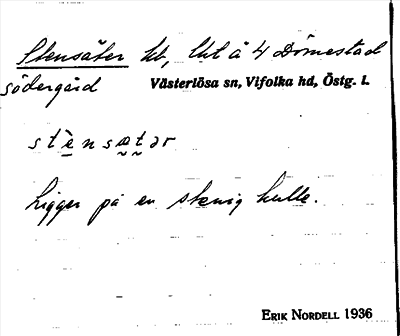 Stensäter hb, lht å 4 Dömestad
södergård Västerlösa sn, Vifolka hd, Östg. l.
stènsætər
Ligger på en stenig kulle.
ERIK NORDELL 1936